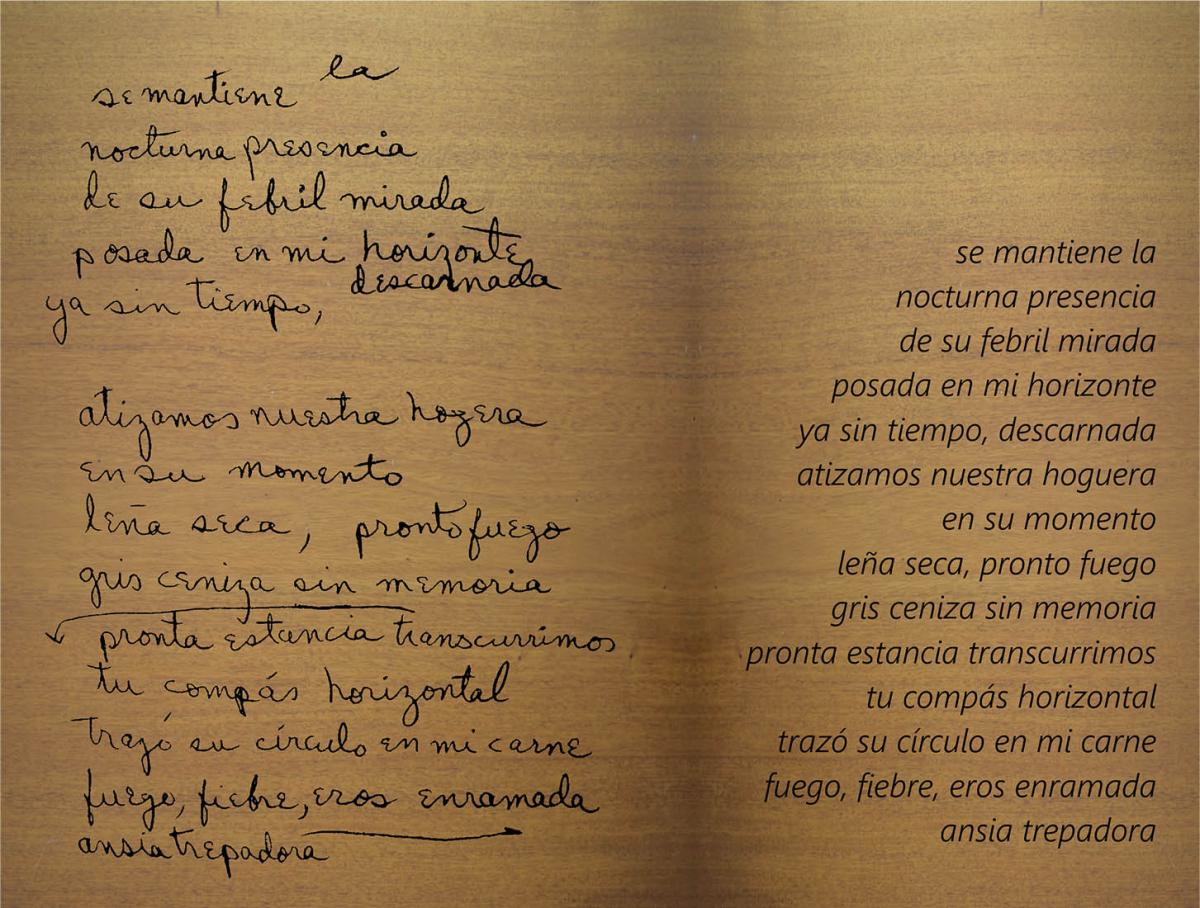 se mantiene la
nocturna presencia
de su febril mirada
posada en mi horizonte
descarnada
ya sin tiempo,
atizamos nuestra hogera
en su momento
leña seca, pronto fuego
gris ceniza sin memoria
pronta estancia transcurrimos
tu compás horizontal
trazó su círculo en mi carne
fuego, fiebre, eros enramada
ansia trepadora
se mantiene la
nocturna presencia
de su febril mirada
posada en mi horizonte
ya sin tiempo, descarnada
atizamos nuestra hoguera
en su momento
leña seca, pronto fuego
gris ceniza sin memoria
pronta estancia transcurrimos
tu compás horizontal
trazó su círculo en mi carne
fuego, fiebre, eros enramada
ansia trepadora